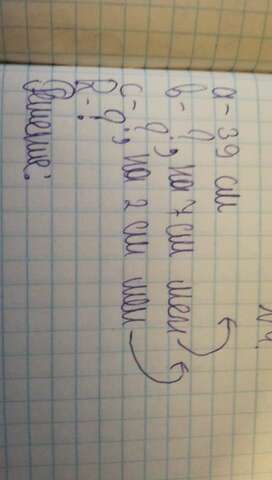 №4.
a - 39 см
b - ?, на 7 см мен
c - ?, на 2 см мен
R - ?
Решение: